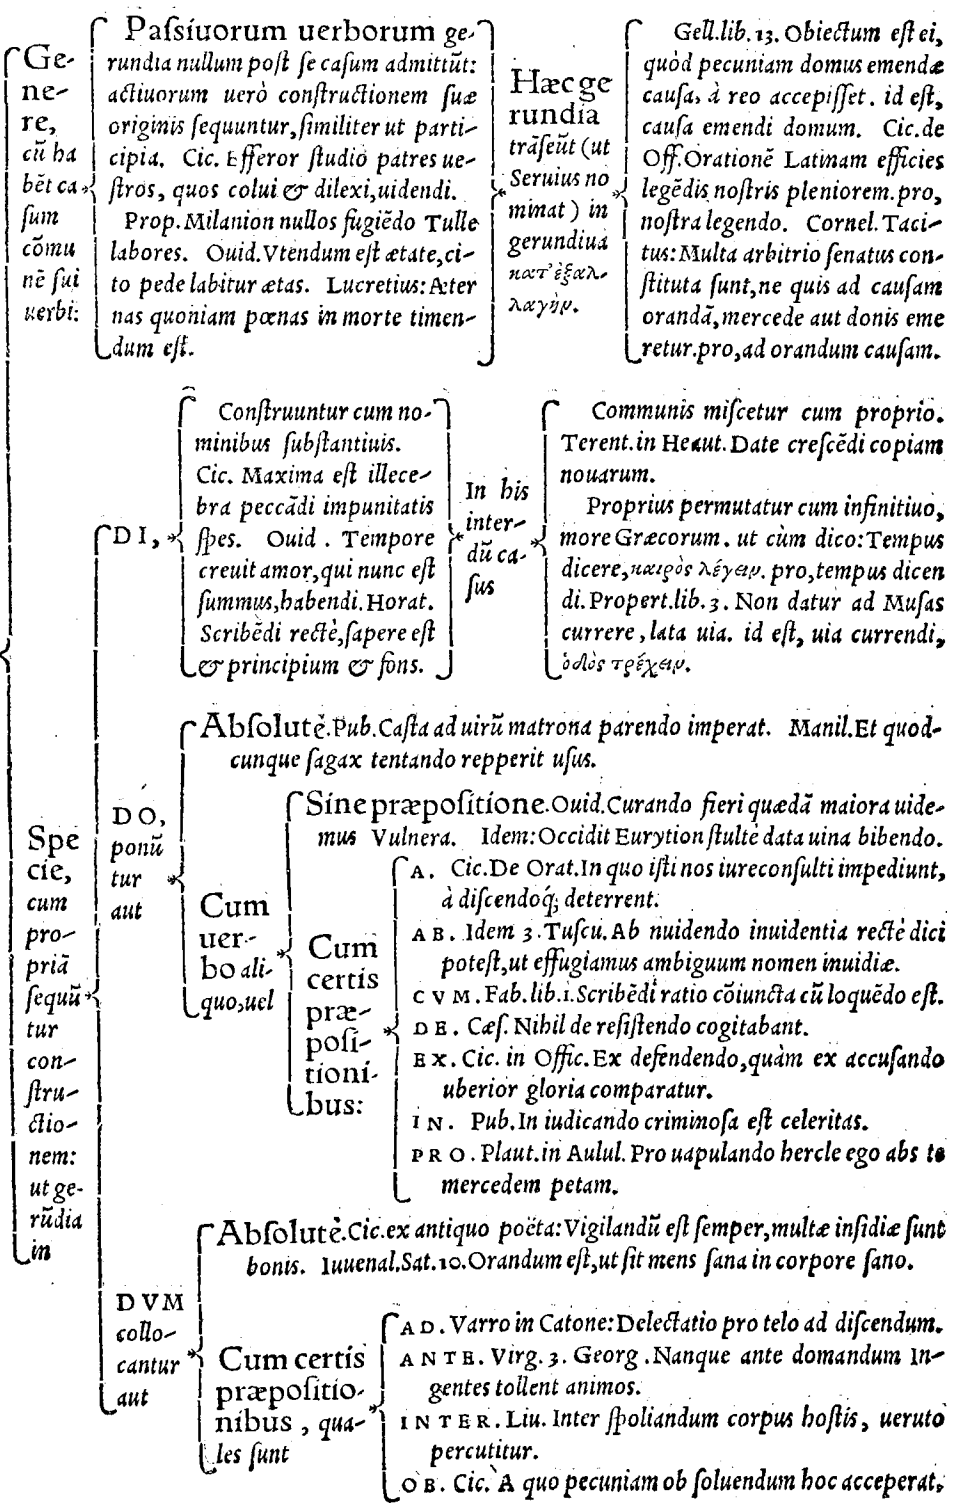 Ge-
ne-
re,
cũ ha
bẽt ca-
ſum
cõmu
nẽ ſui
uerbi:
Paſsiuorum uerborum ge-
rundia nullum poſt ſe caſum admittũt:
actiuorum uerò conſtructionem ſuæ
originis ſequuntur, ſimiliter ut parti-
cipia. Cic. Efferor ſtudio patres ue-
ſtros, quos colui & dilexi, uidendi.
Prop. Milanion nullos fugiẽdo Tulle
labores. Ouid. Vtendum eſt ætate, ci-
to pede labitur ætas. Lucretius: Æter
nas quoniam pœnas in morte timen-
dum eſt.
Hæc ge
rundia
trãſeũt (ut
Seruius no
minat) in
gerundiua
κατ' ἐξαλ-
λαγὴν.
Gell. lib. 13. Obiectum eſt ei,
quòd pecuniam domus emendæ
cauſa, à reo accepiſſet. id eſt,
cauſa emendi domum. Cic. de
Off. Orationẽ Latinam efficies
legẽdis noſtris pleniorem. pro,
noſtra legendo. Cornel. Taci-
tus: Multa arbitrio ſenatus con-
ſtituta ſunt, ne quis ad cauſam
orandã, mercede aut donis eme
retur. pro, ad orandum cauſam.
Spe
cie,
cum
pro-
priã
ſequũ
tur
con-
ſtru-
ctio-
nem:
ut ge-
rũdia
in
DI,
Conſtruuntur cum no-
minibus ſubſtantiuis.
Cic. Maxima eſt illece-
bra peccãdi impunitatis
ſpes. Ouid. Tempore
creuit amor, qui nunc eſt
ſummus, habendi. Horat.
Scribẽdi rectè, ſapere eſt
& principium & fons.
In his
inter-
dũ ca-
ſus
Communis miſcetur cum proprio.
Terent. in Heaut. Date creſcẽdi copiam
nouarum.
Proprius permutatur cum infinitiuo,
more Græcorum. ut cùm dico: Tempus
dicere, καιρὸς λέγειν. pro, tempus dicen
di. Propert. lib. 3. Non datur ad Muſas
currere, lata uia. id eſt, uia currendi,
ὁδὸς τρέχειν.
DO,
ponũ
tur
aut
Abſolutè. Pub. Caſta ad uirũ matrona parendo imperat. Manil. Et quod-
cunque ſagax tentando repperit uſus.
Cum
uer-
bo ali-
quo, uel
Sine præpoſitione. Ouid. Curando fieri quædã maiora uide-
mus Vulnera. Idem: Occidit Eurytion ſtultè data uina bibendo.
Cum
certis
præ-
poſi-
tioni-
bus:
A. Cic. De Orat. In quo iſti nos iureconſulti impediunt,
à diſcendoq́; deterrent.
AB. Idem 3. Tuſcu. Ab nuidendo inuidentia rectè dici
poteſt, ut effugiamus ambiguum nomen inuidiæ.
CVM. Fab. lib. 1. Scribẽdi ratio cõiuncta cũ loquẽdo eſt.
DE. Cæſ. Nihil de reſiſtendo cogitabant.
EX. Cic. in Offic. Ex defendendo, quàm ex accuſando
uberior gloria comparatur.
IN. Pub. In iudicando criminoſa eſt celeritas.
PRO. Plaut. in Aulul. Pro uapulando hercle ego abs te
mercedem petam.
DVM
collo-
cantur
aut
Abſolutè. Cic. ex antiquo poëta: Vigilandũ eſt ſemper, multæ inſidiæ ſunt
bonis. Iuuenal. Sat. 10. Orandum eſt, ut ſit mens ſana in corpore ſano.
Cum certis
præpoſitio-
nibus, qua-
les ſunt
AD. Varro in Catone: Delectatio pro telo ad diſcendum.
ANTE. Virg. 3. Georg. Nanque ante domandum In-
gentes tollent animos.
INTER. Liu. Inter ſpoliandum corpus hoſtis, ueruto
percutitur.
OB. Cic. A quo pecuniam ob ſoluendum hoc acceperat,